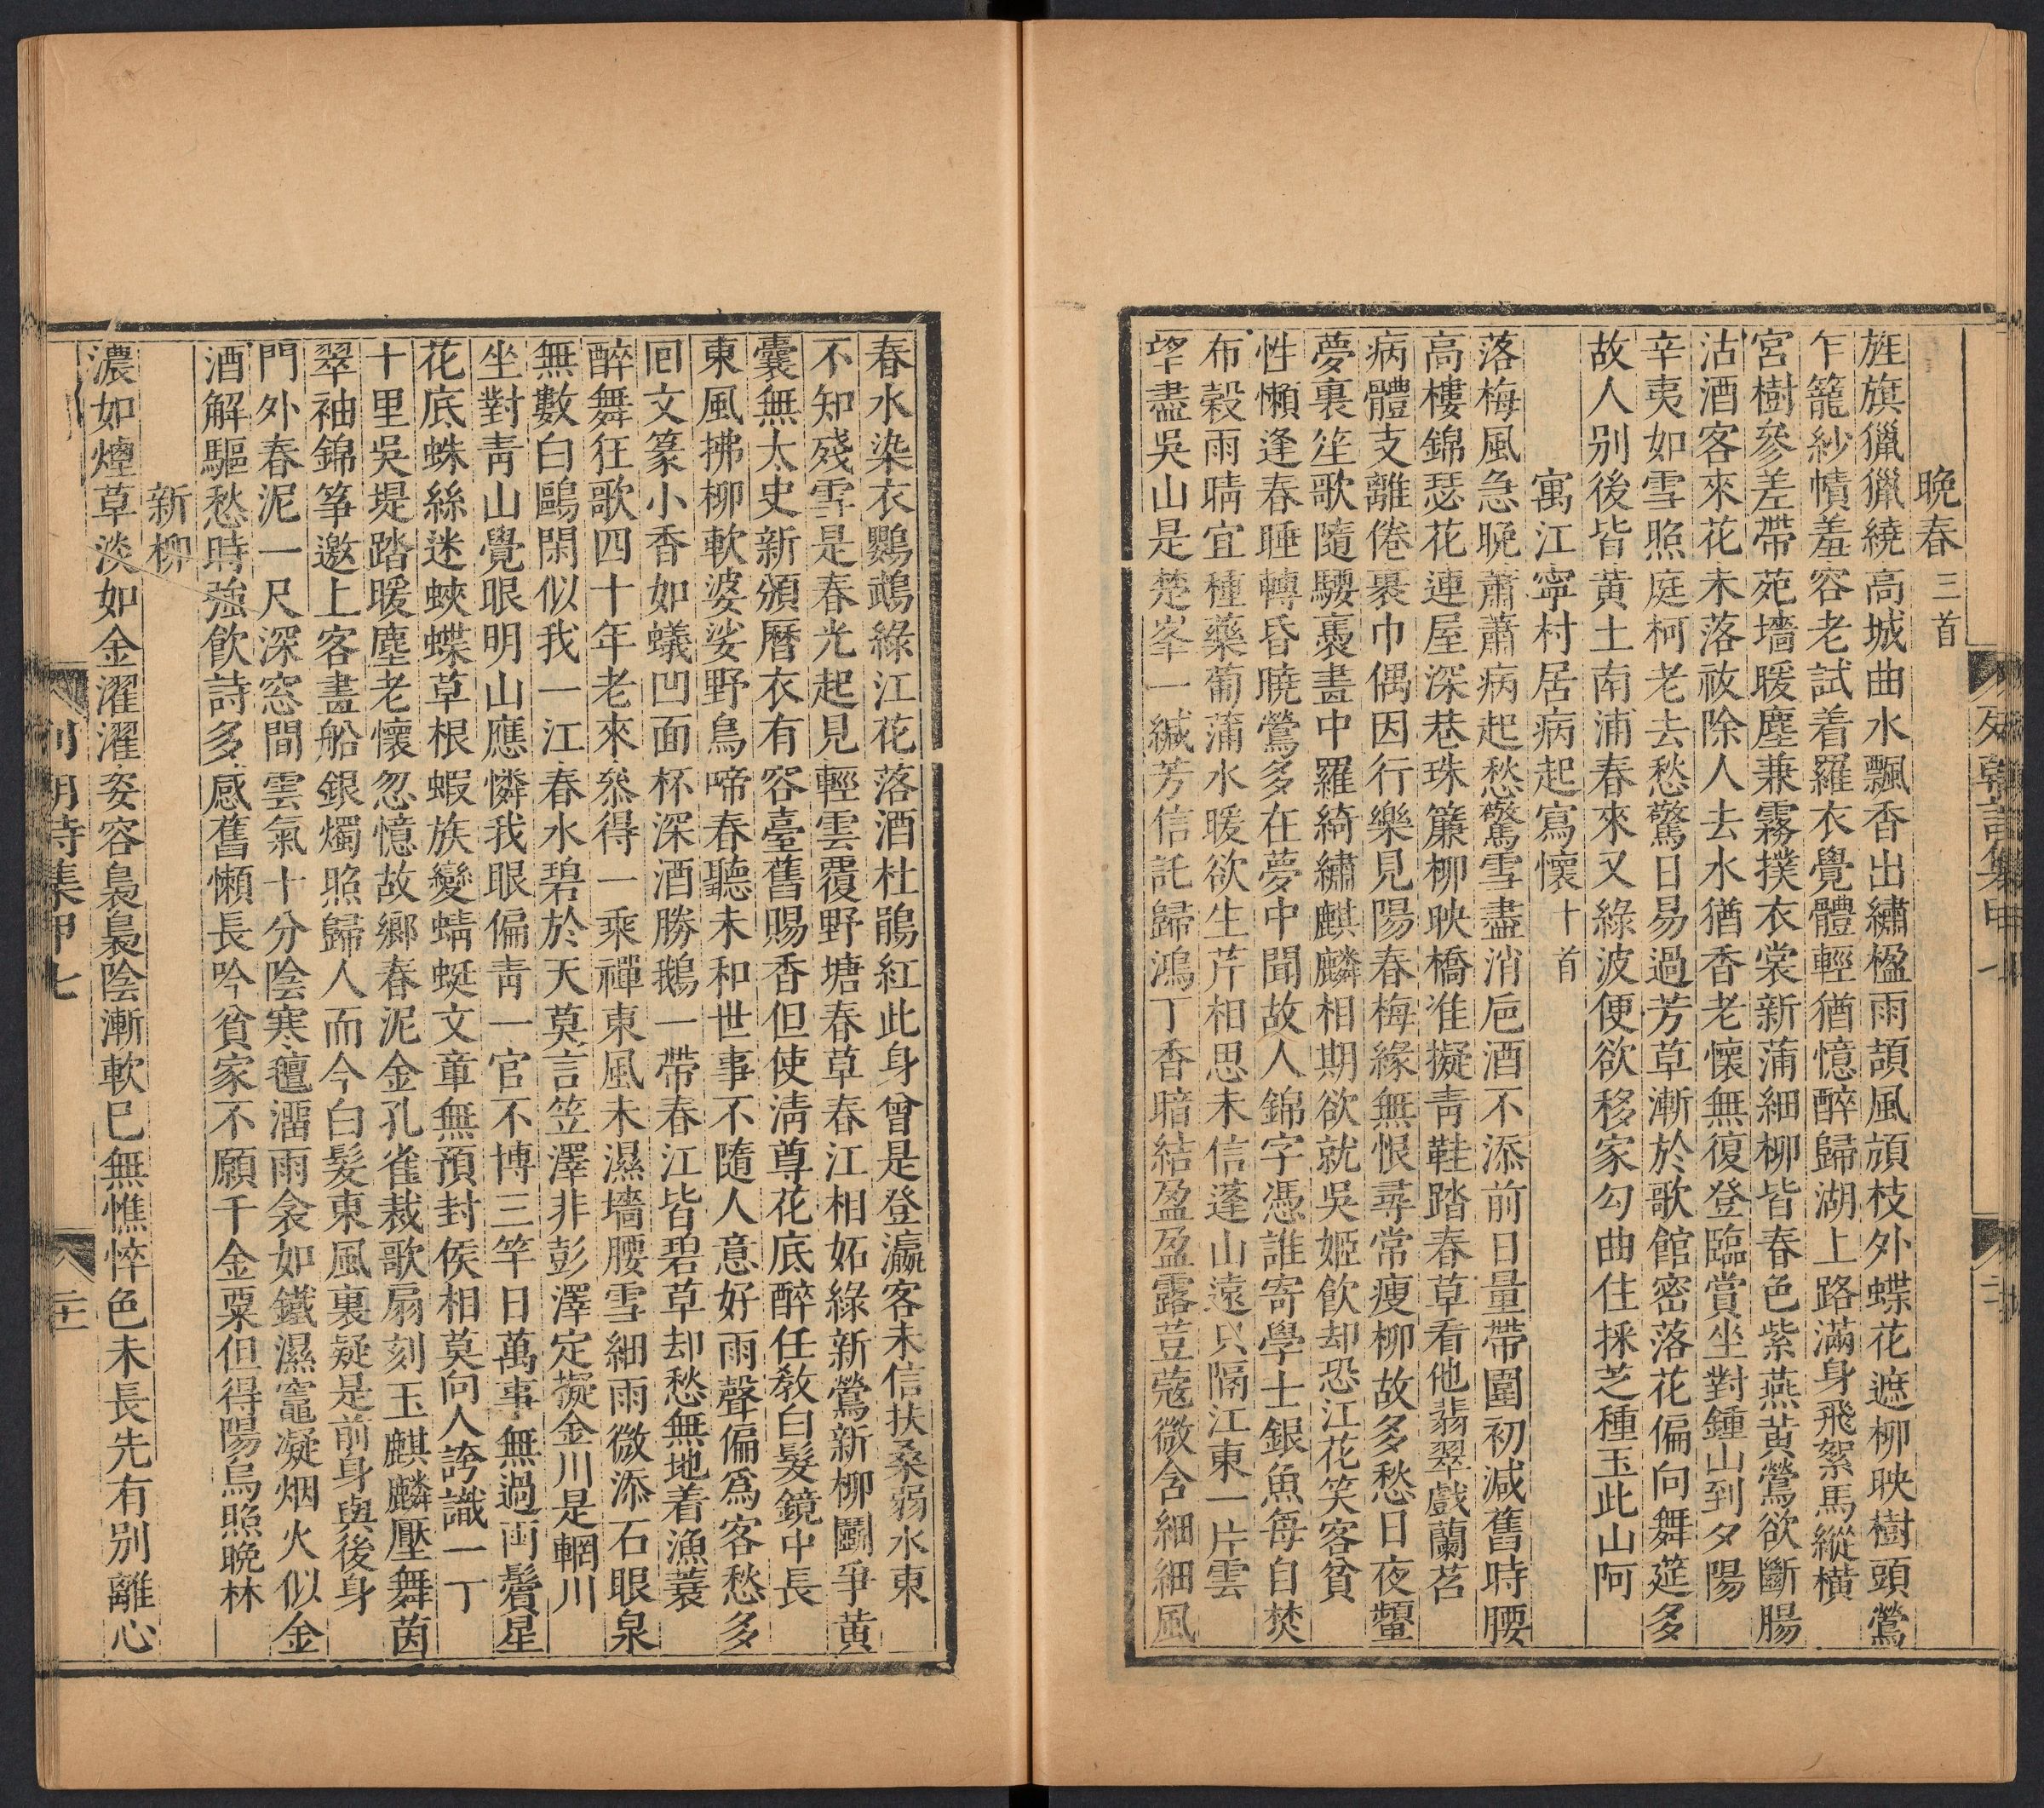 晚春三首
旌旗獵獵繞高城曲水飄香出繡楹雨頡風頏枝外蝶花遮柳映樹頭鶯
乍籠紗幘羞容老試着羅衣覺體輕猶憶醉歸湖上路滿身飛絮馬縱橫
宮樹參差帶苑墻暖塵兼霧撲衣裳新蒲細柳皆春色紫燕黃鶯欲斷腸
沽酒客來花未落祓除人去水猶香老懷無復登臨賞坐對鍾山到夕陽
辛夷如雪照庭柯老去愁驚日易過芳草漸於歌館密落花偏向舞筵多
故人别後皆黃土南浦春來又綠波便欲移家勾曲住採芝種玉此山阿
寓江寧村居病起寫懷十首
落梅風急晚蕭蕭病起愁驚雪盡消巵酒不添前日量帶圍初減舊時腰
高樓錦瑟花連屋深巷珠簾柳映橋准擬青鞋踏春草看他翡翠戲蘭苕
病體支離倦裹巾偶因行樂見陽春梅緣無恨尋常瘦柳故多愁日夜顰
夢裏笙歌隨騕褭畫中羅綺繡麒麟相期欲就吳姬飲却恐江花笑客貧
性懶逢春睡轉昏曉鶯多在夢中聞故人錦字憑誰寄學士銀魚每自焚
布穀雨晴宜種藥葡蒲水暖欲生芹相思未信蓬山遠只隔江東一片雲
望盡吳山是楚峯一緘芳信託歸鴻丁香暗結盈盈露荳蔻微含細細風
春水染衣鸚鵡綠江花落酒杜鵑紅此身曾是登瀛客未信扶桑弱水東
不知殘雪是春光起見輕雲覆野塘春草春江相妬綠新鶯新柳鬭爭黃
囊無太史新頒曆衣有容臺舊賜香但使淸尊花底醉任敎白髮鏡中長
東風拂柳軟婆娑野鳥啼春聽未和世事不隨人意好雨聲偏爲客愁多
囘文篆小香如蟻凹面杯深酒勝鵝一帶春江皆碧草却愁無地着漁蓑
醉舞狂歌四十年老來叅得一乘禪東風未濕墻腰雪細雨微添石眼泉
無數白鷗閑似我一江春水碧於天莫言笠澤非彭澤定擬金川是輞川
坐對靑山覺眼明山應憐我眼偏靑一官不博三竿日萬事無過兩鬢星
花底蛛絲迷蛺蝶草根蝦族變蜻蜓文章無預封侯相莫向人誇識一丁
十里吳堤踏暖塵老懷忽憶故鄉春泥金孔雀裁歌扇刻玉麒麟壓舞茵
翠袖錦筝邀上客畫船銀燭照歸人而今白髮東風裏疑是前身與後身
門外春泥一尺深窓間雲氣十分陰寒氊溜雨衾如鐵濕竈凝烟火似金
酒解驅愁時強飲詩多感舊懶長吟貧家不願千金粟但得陽烏照晚林
新柳
濃如煙草淡如金濯濯姿容裊裊陰漸軟巳無憔悴色未長先有别離心
列朝詩集甲七
二十一